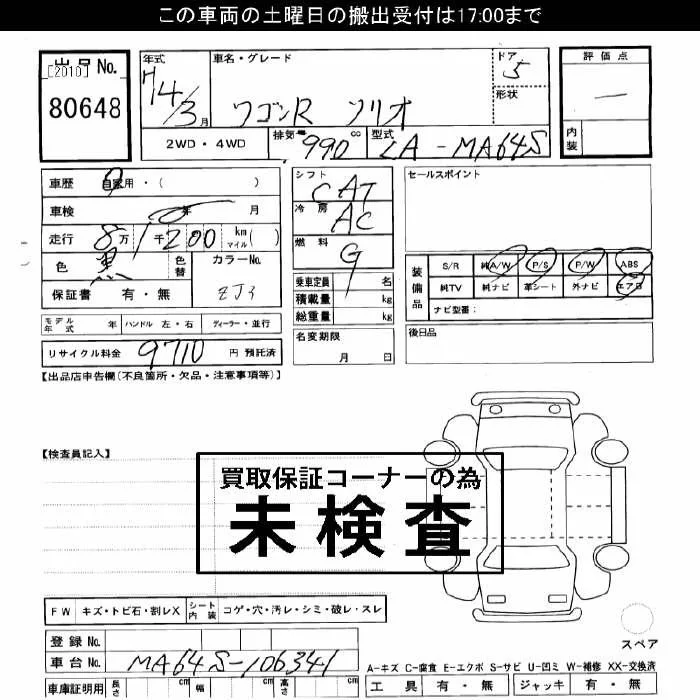 この車両の土曜日の搬出受付は17:00まで
出品 No.
[2010]
80648
年式
H14/3月
車名・グレード
ワゴンR ソリオ
ドア
5
形状
評価点
―
内装
2WD・4WD
排気量 990 cc
型式 LA-MA64S
車歴 自家用・( )
車検 年 月
走行 8万1千200 km マイル( )
色 黒 色替
カラーNo. ZJ3
保証書 有・無
シフト CAT
冷房 AC
燃料 G
乗車定員 名
積載量 kg
総重量 kg
セールスポイント
装備品
S/R 純A/W P/S P/W ABS
純TV 純ナビ 革シート 外ナビ エアB
ナビ型番:
モデル年式 年 ハンドル 左・右 ディーラー・並行
名変期限
月 日
後日品
リサイクル料金 9710 円 預託済
【出品店申告欄(不良箇所・欠品・注意事項等)】
【検査員記入】
買取保証コーナーの為
未検査
FW キズ・トビ石・割レX シート内装 コゲ・穴・汚レ・シミ・破レ・スレ
スペア
登録No.
車台No. MA64S-106341
A-キズ C-腐食 E-エクボ S-サビ U-凹ミ W-補修 XX-交換済
車庫証明用 長さ cm 幅 cm 高さ cm
工具 有・無 ジャッキ 有・無